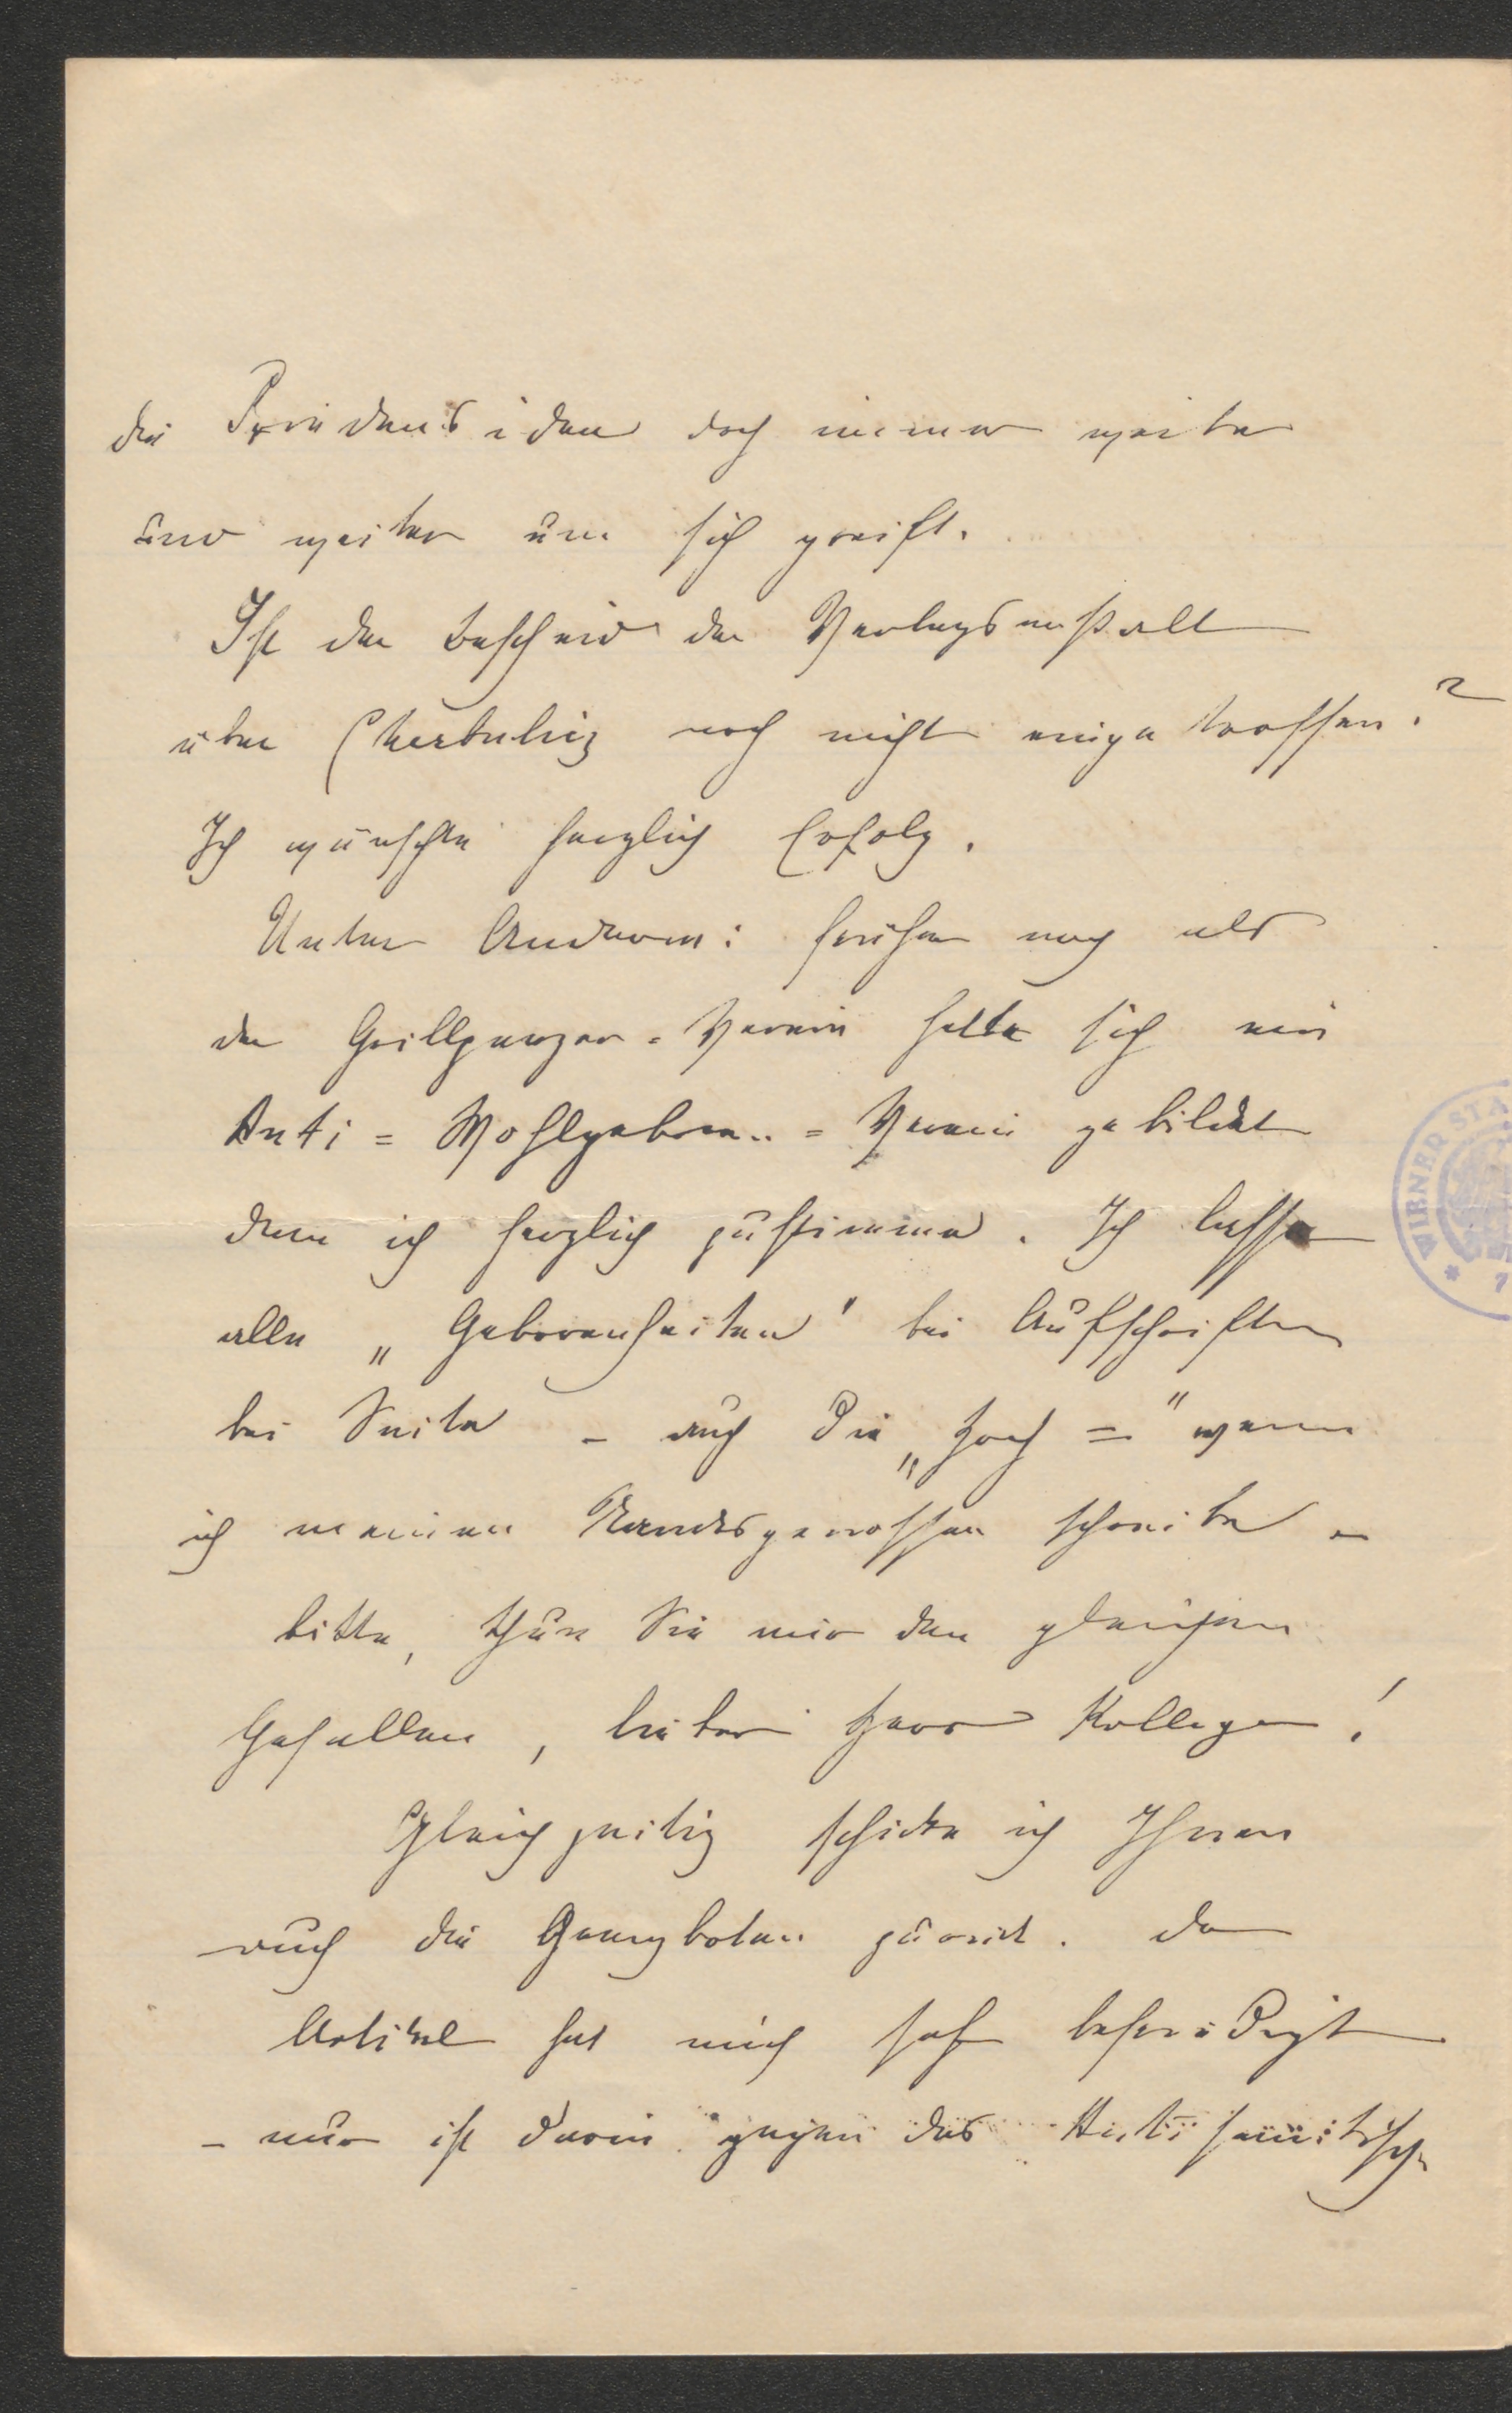 die Friedensidee doch immer weiter
und weiter um sich greift.
Ist der Bescheid der Verlagsanstalt
über Cherbuliez noch nicht eingetroffen?
Ich wünschte herzlich Erfolg.
Unter Anderem: früher noch als
der Grillparzer=Verein hatte sich ein
Anti=Wohlgeboren=Verein gebildet
dem ich herzlich zustimme. Ich lasse
alle „Geborenheiten" bei Aufschriften
bei Seite – auch die „Hoch=" wenn
ich meinen Standesgenossen schreibe –
bitte, thun Sie mir den gleichen
Gefallen, lieber Herr Kollege!
Gleichzeitig schicke ich Ihnen
auch die Grenzboten zurück. Der
Artikel hat mich sehr befriedigt
– nur ist darin gegen das Antisemitisch
WIENER STA